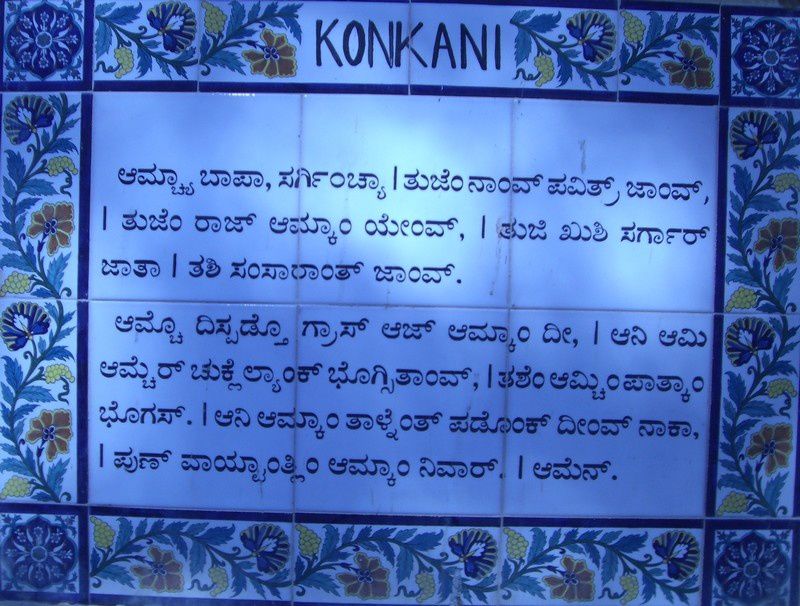 KONKANI
ಆಮ್ಚ್ಯಾ ಬಾಪಾ, ಸರ್ಗಿಂಚ್ಯಾ | ತುಜೆಂ ನಾಂವ್ ಪವಿತ್ರ್ ಜಾಂವ್,
| ತುಜೆಂ ರಾಜ್ ಆಮ್ಕಾಂ ಯೇಂವ್, | ತುಜಿ ಖುಶಿ ಸರ್ಗಾರ್
ಜಾತಾ | ತಶಿ ಸಂಸಾರಾಂತ್ ಜಾಂವ್.
ಆಮ್ಚೊ ದಿಸ್ಪಡ್ತೊ ಗ್ರಾಸ್ ಆಜ್ ಆಮ್ಕಾಂ ದೀ, | ಆನಿ ಆಮಿ
ಆಮ್ಚೆರ್ ಚುಕ್ಲೆಲ್ಯಾಂಕ್ ಭೊಗ್ಸಿತಾಂವ್, | ತಶೆಂ ಆಮ್ಚಿಂ ಪಾತ್ಕಾಂ
ಭೊಗಸ್. | ಆನಿ ಆಮ್ಕಾಂ ತಾಳ್ನೆಂತ್ ಪಡೊಂಕ್ ದೀಂವ್ ನಾಕಾ,
| ಪುಣ್ ವಾಯ್ಟಾಂತ್ಲಿಂ ಆಮ್ಕಾಂ ನಿವಾರ್. | ಆಮೆನ್.